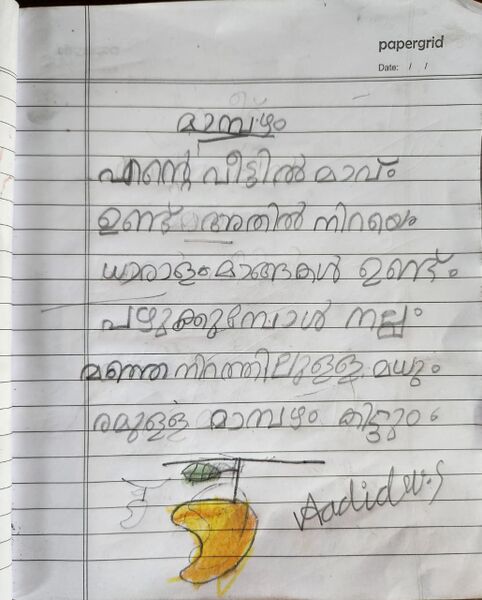 papergrid
Date: / /
മാമ്പഴം
എന്റെ വീട്ടിൽ മാവും
ഉണ്ട് അതിൽ നിറയെ
ധാരാളം മാങ്ങകൾ ഉണ്ട്
പഴുക്കുമ്പോൾ നല്ല
മഞ്ഞ നിറത്തിലുള്ള മധു
രമുള്ള മാമ്പഴം കിട്ടും